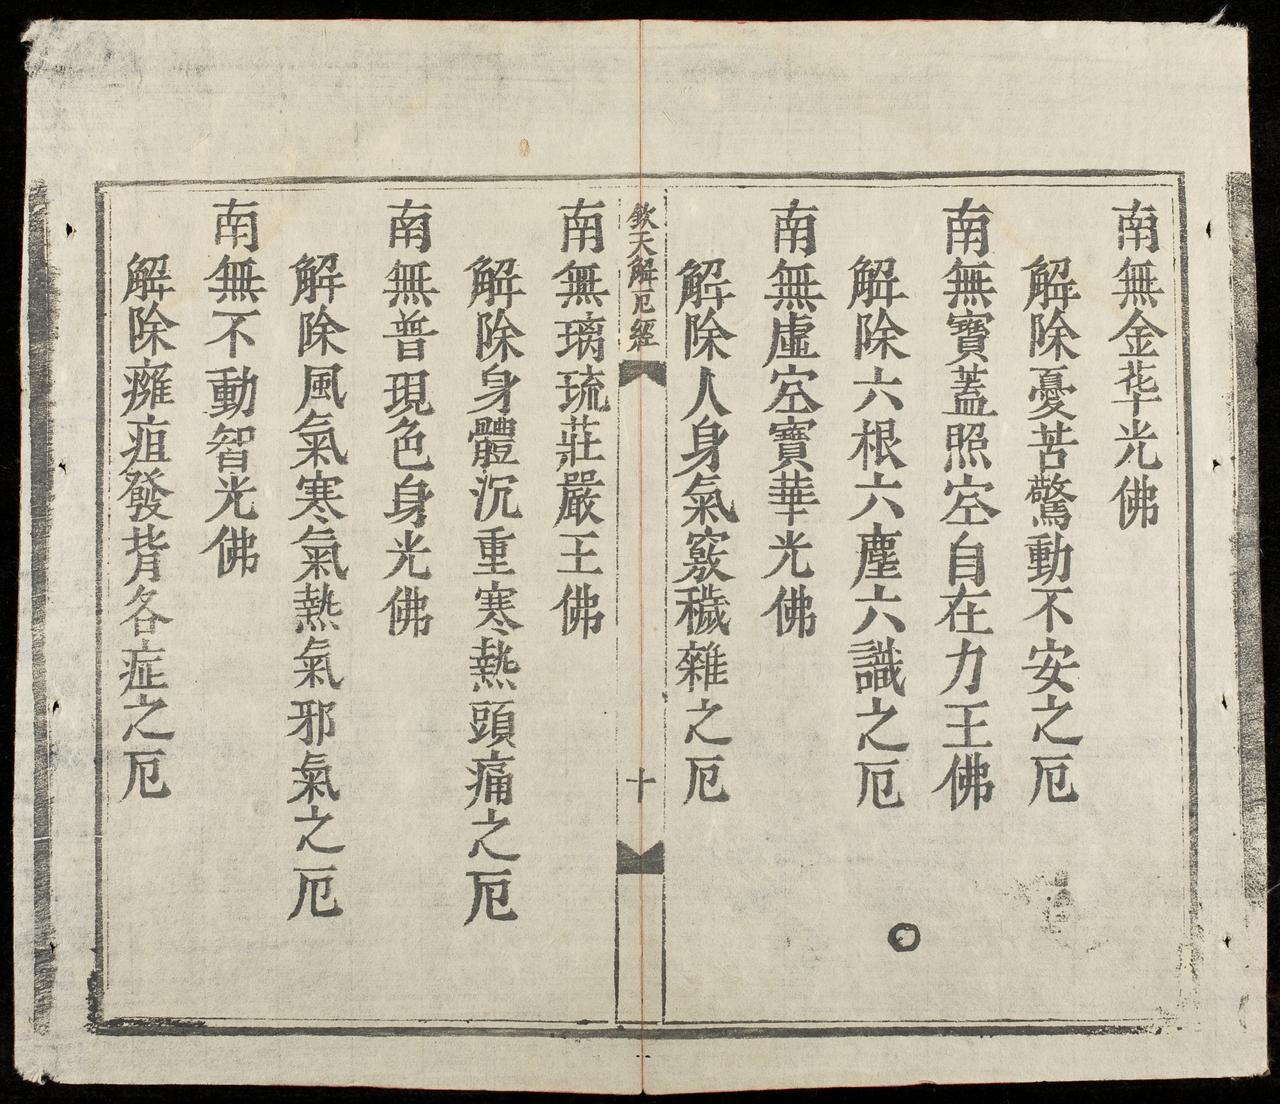 南無金華光佛
解除憂苦驚動不安之厄
南無寶蓋照空自在力王佛
解除六根六塵六識之厄
南無虛空寶華光佛
解除人身氣竅穢雜之厄
欽天解厄經
十
南無璃琉莊嚴王佛
解除身體沉重寒熱頭痛之厄
南無普現色身光佛
解除風氣寒氣熱氣邪氣之厄
南無不動智光佛
解除癰疽發背各症之厄